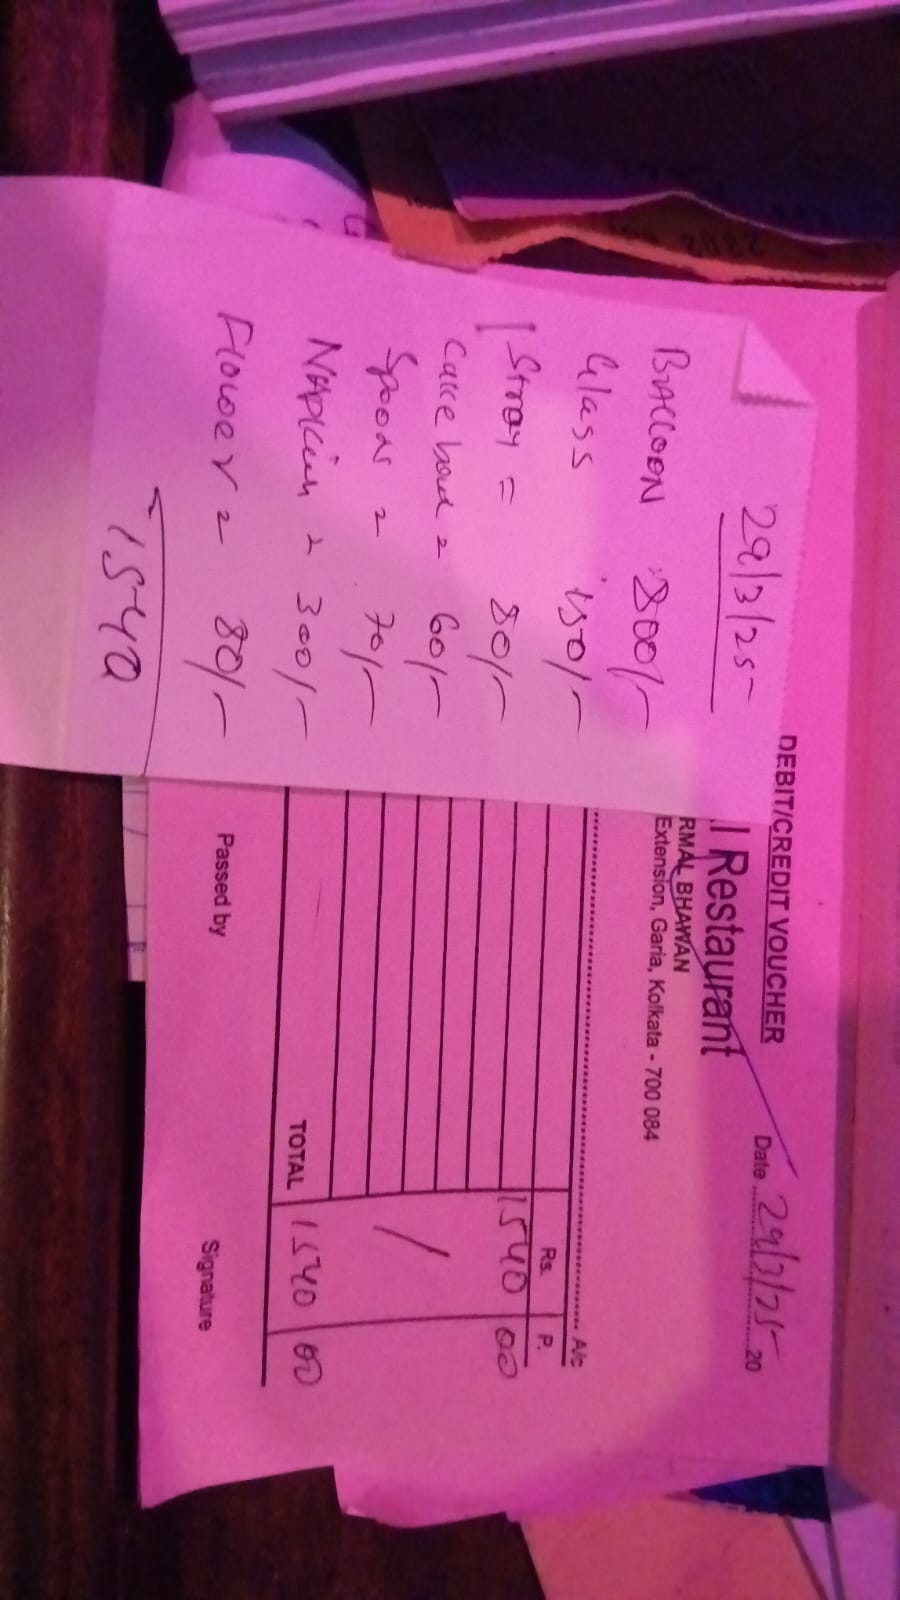 29/3/25
BALLOON 800/-
Glass 150/-
Stray = 80/-
Cake board = 60/-
Spoon = 70/-
Napkin = 300/-
Flower = 80/-
1540
DEBIT/CREDIT VOUCHER
Restaurant
Date 29/3/25 20
RMAL BHAWAN
Extension, Garia, Kolkata - 700 084
A/c
Rs. P.
1540 00
TOTAL 1540 00
Passed by Signature